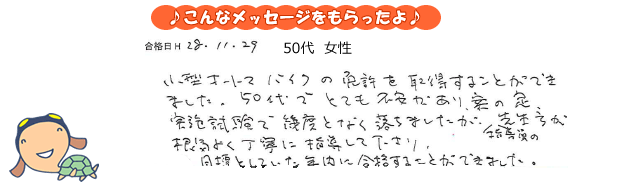 ♪こんなメッセージをもらったよ♪
合格日 H 28.11.29 50代 女性
小型オートマバイクの免許を取得することができ
ました。50代でとても不安があり、案の定、
実施試験で幾度となく落ちましたが、先生方が
指導員の
根気よく丁寧に指導して下さり、
目標としていた年内に合格することができました。